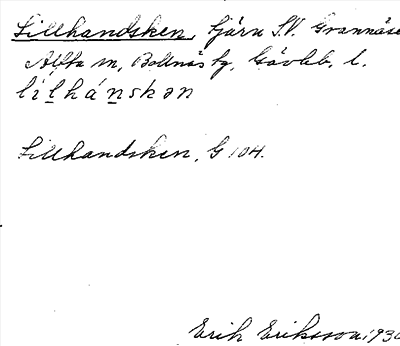 Lillhandsken, tjärn S.V. Grannäse
Alfta sn, Bollnäs tg, Gävleb. l.
lílhánskən
Lillhandsken, G 104.
Erik Eriksson 193